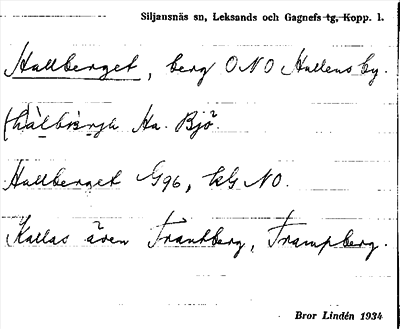 Siljansnäs sn, Leksands och Gagnefs tg, Kopp. l.
Hallberget, berg ONO Hallens by.
Ha. Bjö.
Hallberget G96, kG NO.
Kallas även Trantberg, Trampberg.
Bror Lindén 1934